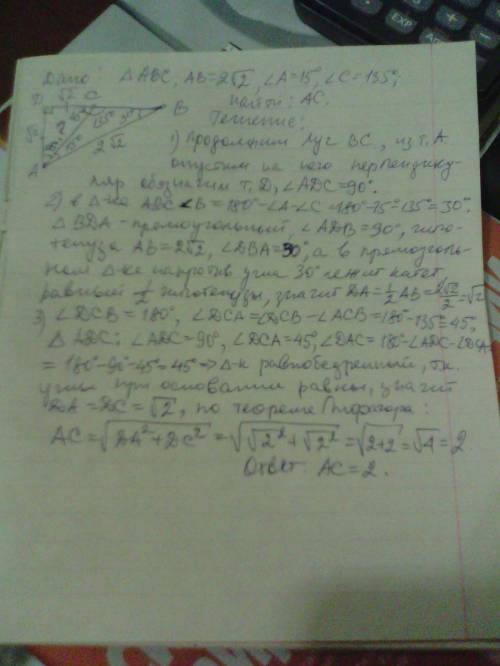 Дано: △ ABC, AB=2√2, ∠A=15°, ∠C=135°;
Найти: AC.
Решение:
D √2 C B
√2 ? 45° 135° 30°
A 45° 15° 2√2
1) Продолжим луч BC, из т. A
опустим на него перпендику-
ляр обозначим т. D, ∠ADC=90°.
2) в △-ке ABC ∠B=180°-∠A-∠C=180°-15°-135°=30°.
△ BDA - прямоугольный, ∠ADB=90°, гипо-
тенуза AB=2√2, ∠DBA=30°, а в прямоуголь-
ном △-ке напротив угла 30° лежит катет,
равный 1/2 гипотенузы, значит DA=1/2 AB=2√2/2=√2
3) ∠DCB=180°, ∠DCA=∠DCB-∠ACB=180°-135°=45°,
△ ADC: ∠ADC=90°, ∠DCA=45°, ∠DAC=180°-∠ADC-∠DCA=
=180°-90°-45°=45° ⇒ △-к равнобедренный, т.к.
углы при основании равны, значит
DA=DC=√2, по теореме Пифагора:
AC=√(DA²+DC²)=√(√2²+√2²)=√(2+2)=√4=2
Ответ: AC=2.
EXP